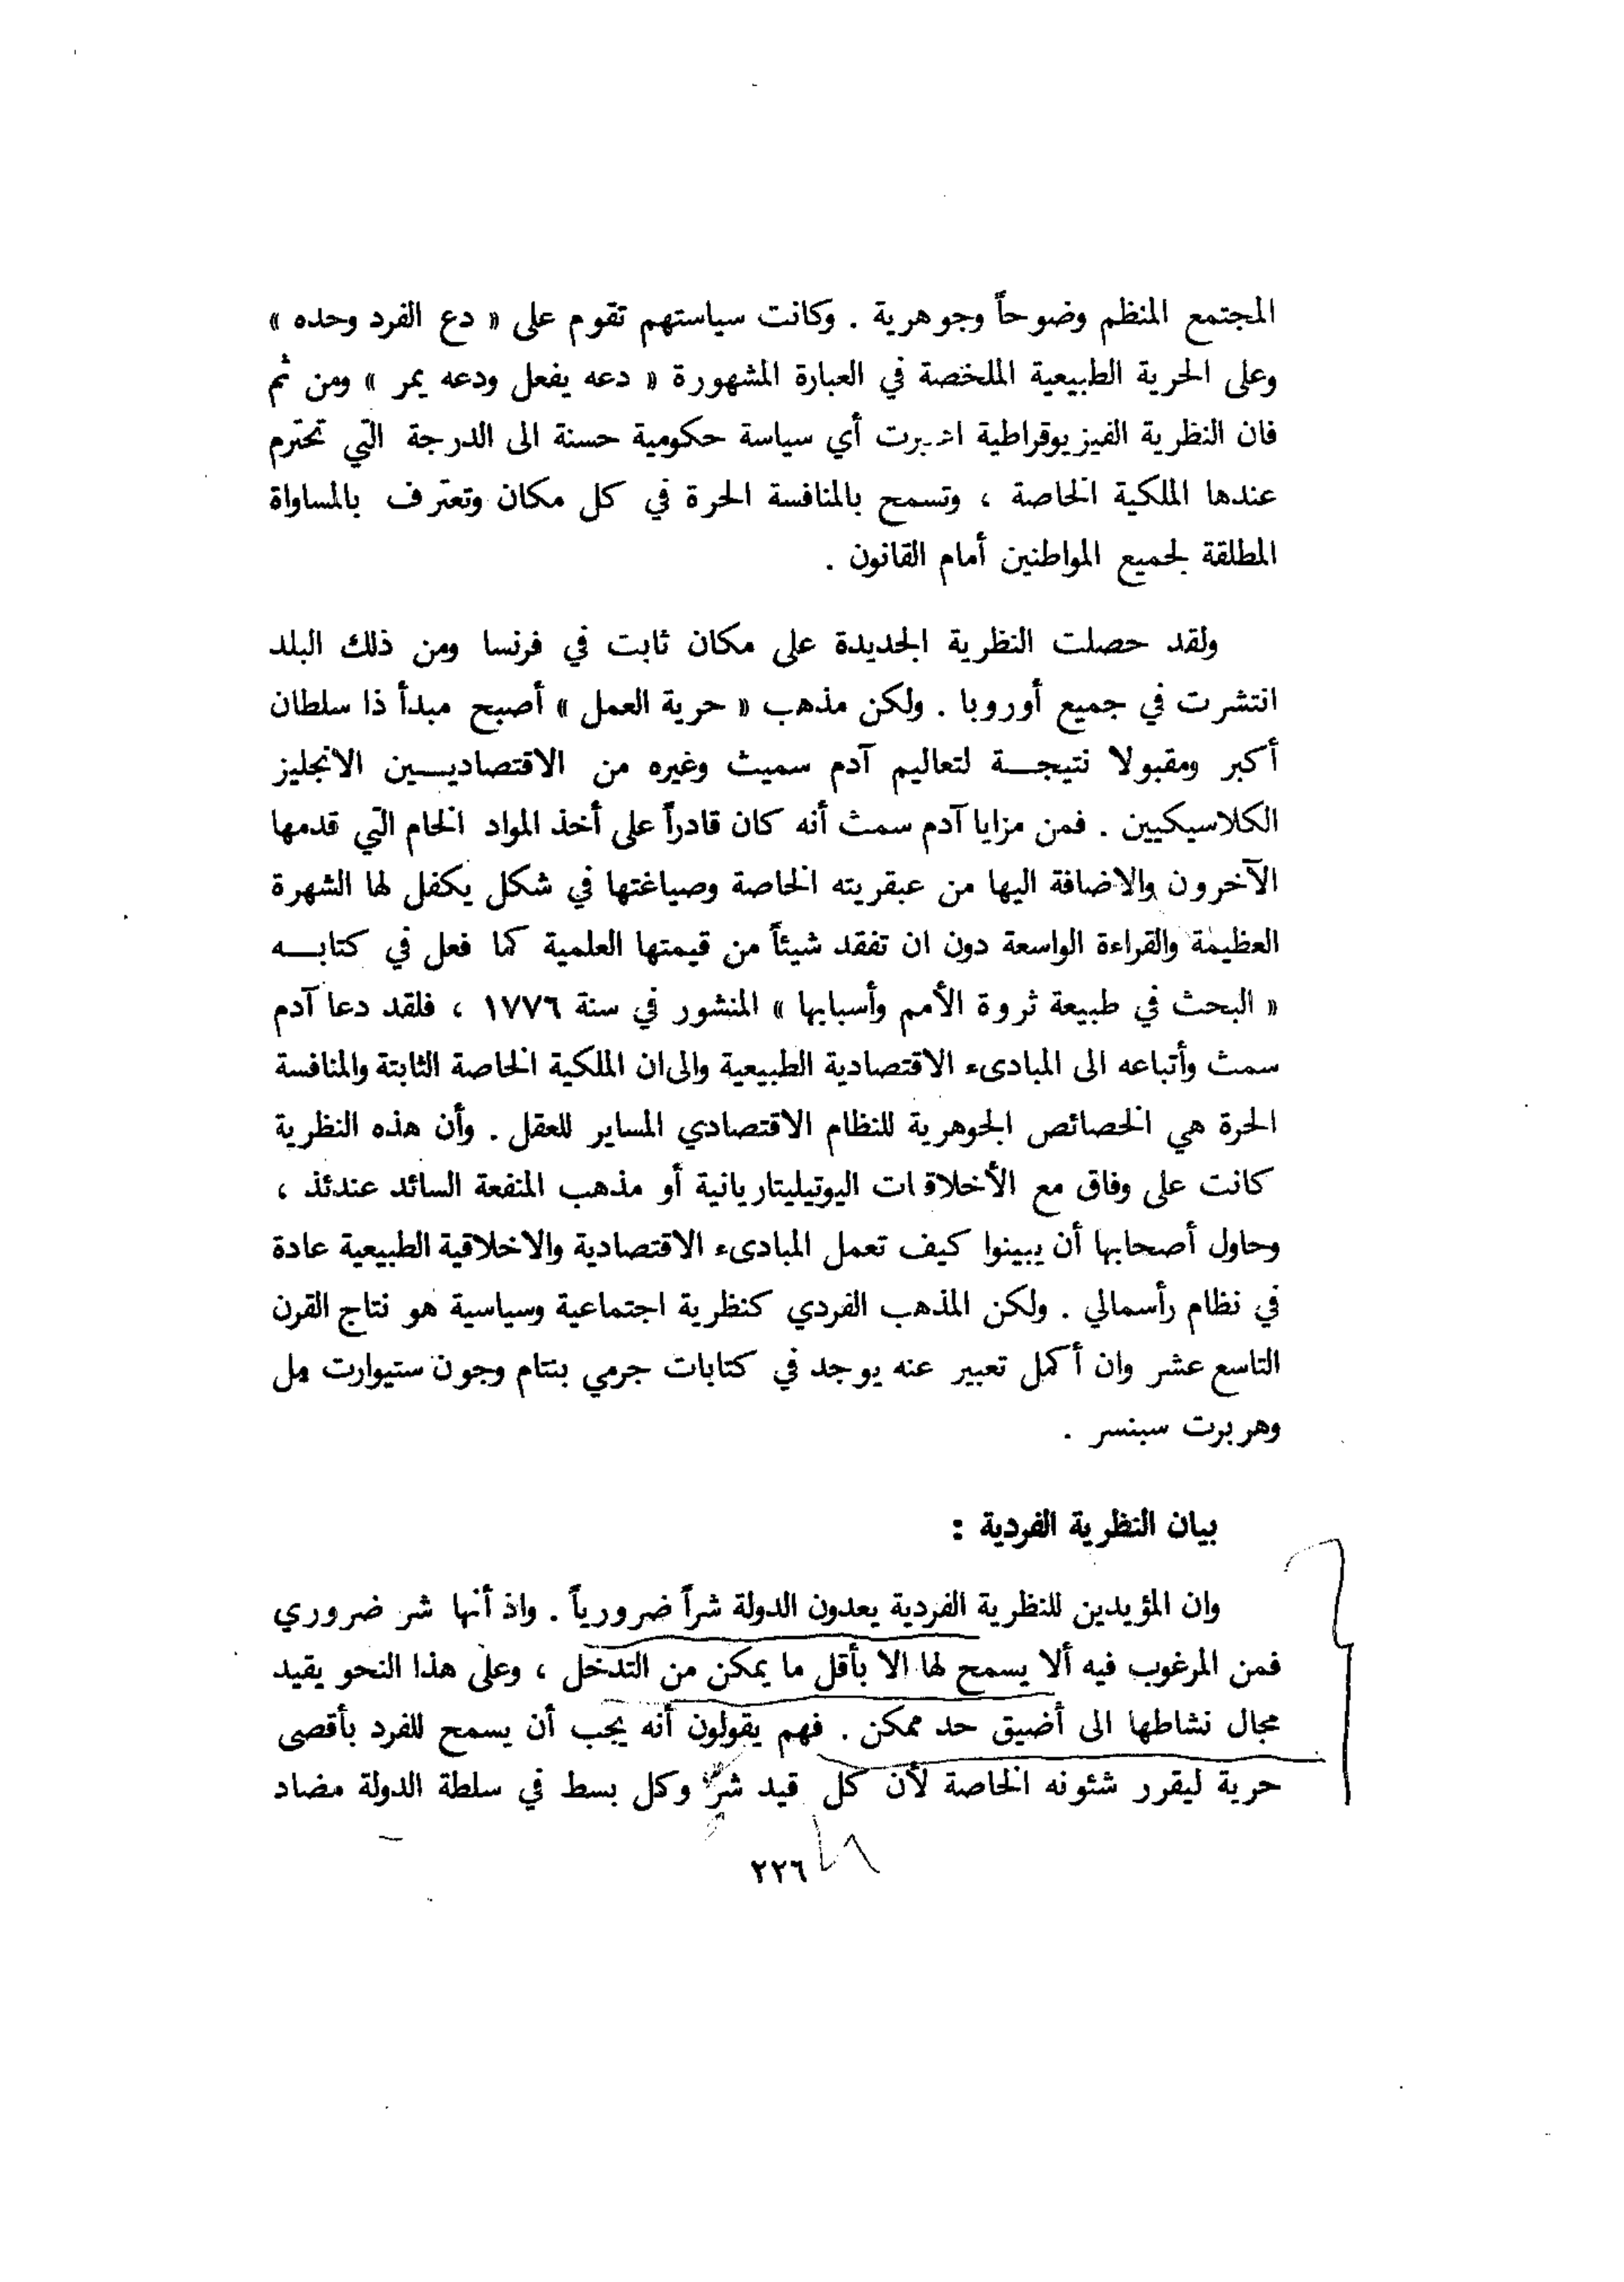 المجتمع المنظم وضوحاً وجوهرية . وكانت سياستهم تقوم على « دع الفرد وحده »
وعلى الحرية الطبيعية الملخصة في العبارة المشهورة « دعه يفعل ودعه يمر » ومن ثم
فان النظرية الفيزيوقراطية أي سياسة حكومية حسنة الى الدرجة التي تحترم
عندها الملكية الخاصة ، وتسمح بالمنافسة الحرة في كل مكان وتعترف بالمساواة
المطلقة لجميع المواطنين أمام القانون .
ولقد حصلت النظرية الجديدة على مكان ثابت في فرنسا ومن ذلك البلد
انتشرت في جميع أوروبا . ولكن مذهب « حرية العمل » أصبح مبدأ ذا سلطان
أكبر ومقبولا نتيجـــة لتعاليم آدم سميث وغيره من الاقتصاديـــين الانجليز
الكلاسيكيين . فمن مزايا آدم سمث أنه كان قادراً على أخذ المواد الخام التي قدمها
الآخرون والاضافة اليها من عبقريته الخاصة وصياغتها في شكل يكفل لها الشهرة
العظيمة والقراءة الواسعة دون ان تفقد شيئاً من قيمتها العلمية كما فعل في كتابـــه
« البحث في طبيعة ثروة الأمم وأسبابها » المنشور في سنة ١٧٧٦ ، فلقد دعا آدم
سمث وأتباعه الى المبادىء الاقتصادية الطبيعية والى ان الملكية الخاصة الثابتة والمنافسة
الحرة هي الخصائص الجوهرية للنظام الاقتصادي المساير للعقل . وأن هذه النظرية
كانت على وفاق مع اليوتيليتاريانية أو مذهب المنفعة السائد عندئذ ،
وحاول أصحابها أن يبينوا كيف تعمل المبادىء الاقتصادية والاخلاقية الطبيعية عادة
في نظام رأسمالي . ولكن المذهب الفردي كنظرية اجتماعية وسياسية هو نتاج القرن
التاسع عشر وان أكمل تعبير عنه يوجد في كتابات جرمي بنتام وجون ستيوارت مل
وهربرت سبنسر .
بيان النظرية الفردية :
وان المؤيدين للنظرية الفردية يعدون الدولة شراً ضرورياً . واذ أنها شر ضروري
فمن المرغوب فيه ألا يسمح لها الا بأقل ما يمكن من التدخل ، وعلى هذا النحو يقيد
مجال نشاطها الى أضيق حد ممكن . فهم يقولون أنه يجب أن يسمح للفرد بأقصى
حرية ليقرر شئونه الخاصة لأن كل قيد شر وكل بسط في سلطة الدولة مضاد
٢٢٦